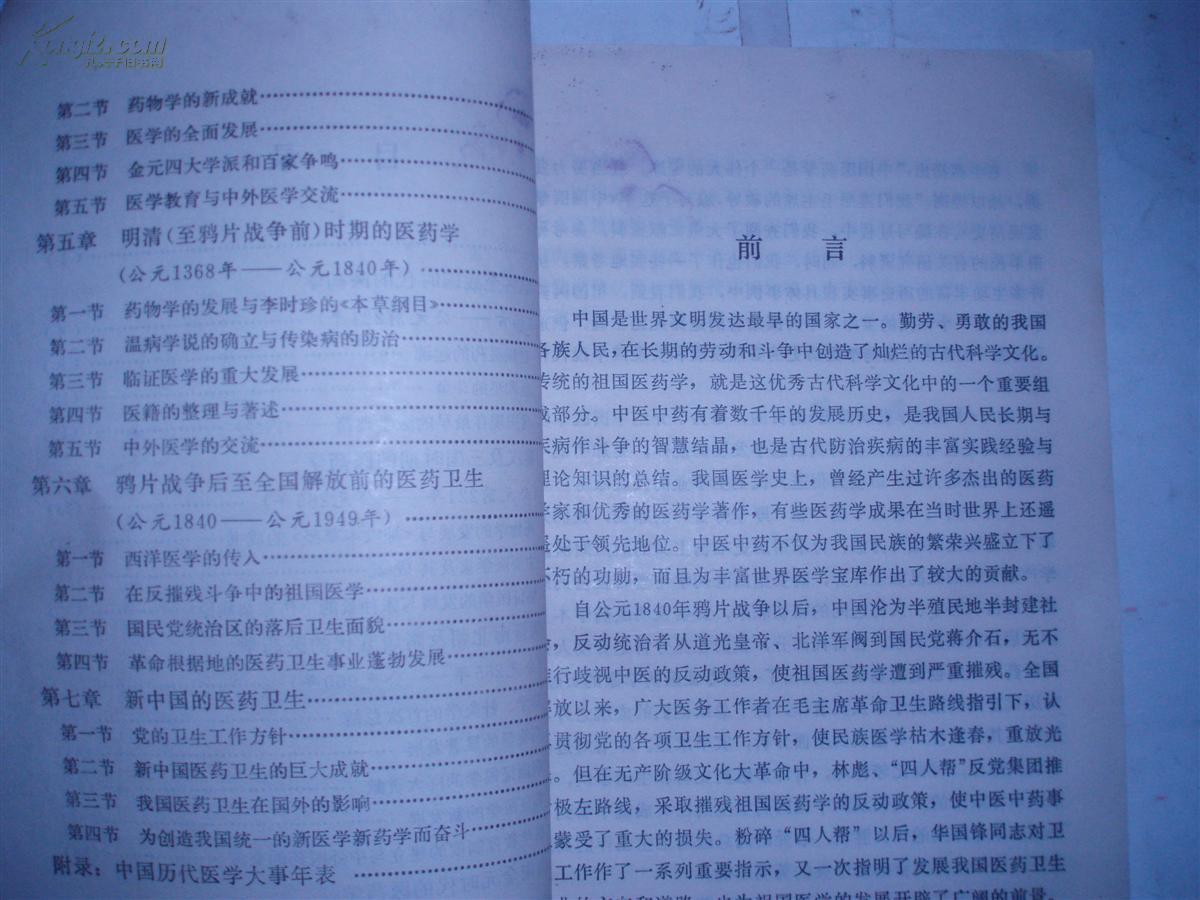 Kongfz.com
孔夫子旧书网
第二节 药物学的新成就
第三节 医学的全面发展
第四节 金元四大学派和百家争鸣
第五节 医学教育与中外医学交流
第五章 明清(至鸦片战争前)时期的医药学
(公元1368年——公元1840年)
第一节 药物学的发展与李时珍的《本草纲目》
第二节 温病学说的确立与传染病的防治
第三节 临证医学的重大发展
第四节 医籍的整理与著述
第五节 中外医学的交流
第六章 鸦片战争后至全国解放前的医药卫生
(公元1840——公元1949年)
第一节 西洋医学的传入
第二节 在反摧残斗争中的祖国医学
第三节 国民党统治区的落后卫生面貌
第四节 革命根据地的医药卫生事业蓬勃发展
第七章 新中国的医药卫生
第一节 党的卫生工作方针
第二节 新中国医药卫生的巨大成就
第三节 我国医药卫生在国外的影响
第四节 为创造我国统一的新医学新药学而奋斗
附录：中国历代医学大事年表
前 言
中国是世界文明发达最早的国家之一。勤劳、勇敢的我国
各族人民，在长期的劳动和斗争中创造了灿烂的古代科学文化。
传统的祖国医药学，就是这优秀古代科学文化中的一个重要组
成部分。中医中药有着数千年的发展历史，是我国人民长期与
疾病作斗争的智慧结晶，也是古代防治疾病的丰富实践经验与
理论知识的总结。我国医学史上，曾经产生过许多杰出的医药
学家和优秀的医药学著作，有些医药学成果在当时世界上还遥
遥处于领先地位。中医中药不仅为我国民族的繁荣兴盛立下了
不朽的功勋，而且为丰富世界医学宝库作出了较大的贡献。
自公元1840年鸦片战争以后，中国沦为半殖民地半封建社
会，反动统治者从道光皇帝、北洋军阀到国民党蒋介石，无不
推行歧视中医的反动政策，使祖国医药学遭到严重摧残。全国
解放以来，广大医务工作者在毛主席革命卫生路线指引下，认
真贯彻党的各项卫生工作方针，使民族医学枯木逢春，重放光
。但在无产阶级文化大革命中，林彪、“四人帮”反党集团推
极左路线，采取摧残祖国医药学的反动政策，使中医中药事
蒙受了重大的损失。粉碎“四人帮”以后，华国锋同志对卫
工作作了一系列重要指示，又一次指明了发展我国医药卫生
的方向和道路，也为祖国医学的发展开辟了广阔的前景。